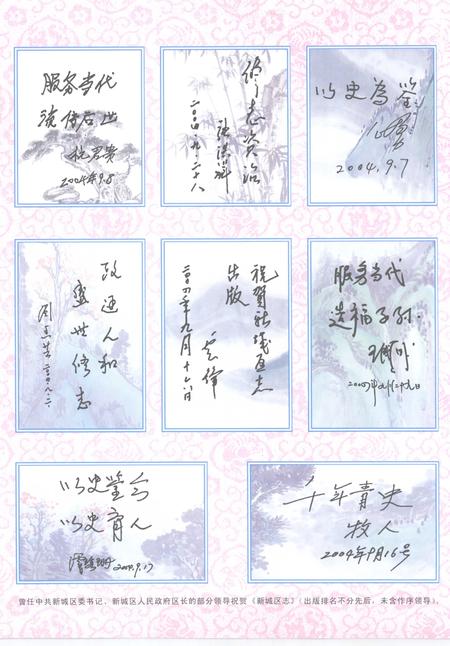 服务当代
流传后世
2004年9.8
修志资治
二〇〇四.九.二十八
以史为鉴
2004.9.7
政通人和
盛世修志
祝贺新城区志
出版
二〇〇四年九月十六日
服务当代
造福子孙.
以史鉴今
以史育人
2004.9.17
千年青史
牧人
2004年9月16号
曾任中共新城区委书记、新城区人民政府区长的部分领导祝贺《新城区志》(出版排名不分先后，未含作序领导)。